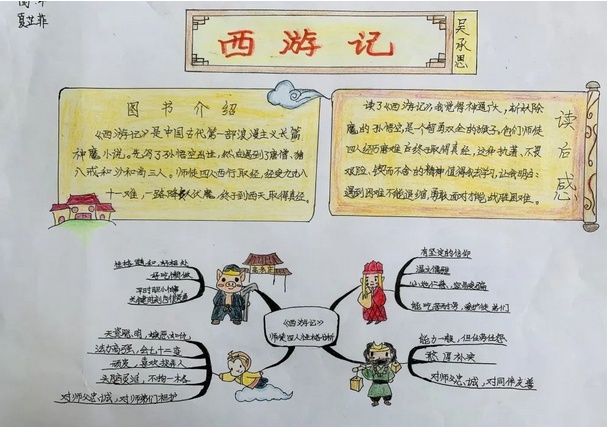 夏芷菲
西游记
吴承恩
图书介绍
《西游记》是中国古代第一部浪漫主义长篇
神魔小说。先写了孙悟空出世，然后遇到了唐僧、猪
八戒和沙和尚三人。师徒四人西行取经，经受九九八
十一难，一路降妖伏魔，终于到西天取得真经。
读了《西游记》我觉得神通广大，斩妖除
魔的孙悟空，是一个智勇双全的猴子。他们师徒
四人经历磨难后终于取得真经，这种执着、不畏
艰险、锲而不舍的精神值得我学习，让我明白：
遇到困难不能退缩，勇敢面对才能战胜困难。
读后感
《西游记》
师徒四人性格分析
性格随和，好相处
好吃懒做
有坚定的信仰
温文儒雅
能吃苦耐劳，爱护徒弟们
天资聪明，
法力高强，会七十二变
顽皮，喜欢捉弄人
头脑灵活，不拘一格
对师父忠诚，对师弟们拥护
能力一般，但任劳任怨
憨厚朴实
对师父忠诚，对同伴友善